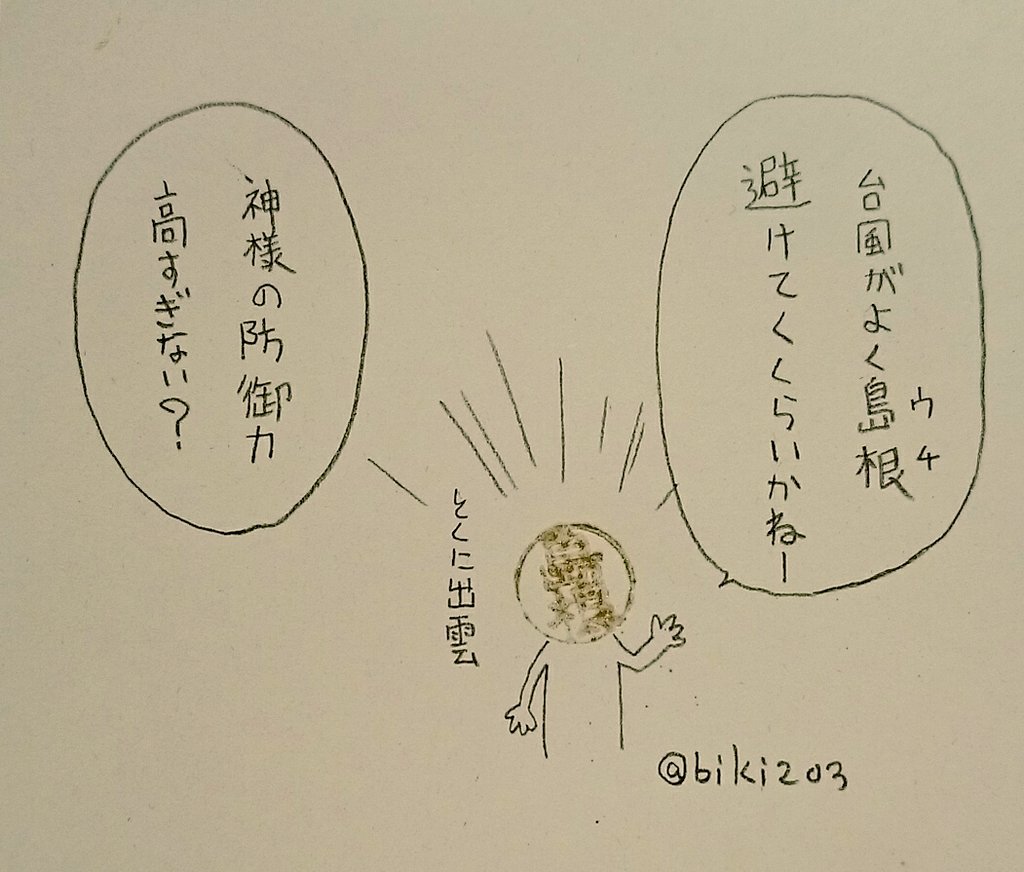 台風がよく島根
ウチ
避けてくくらいかねー
神様の防御力
高すぎない?
とくに出雲
@biki203